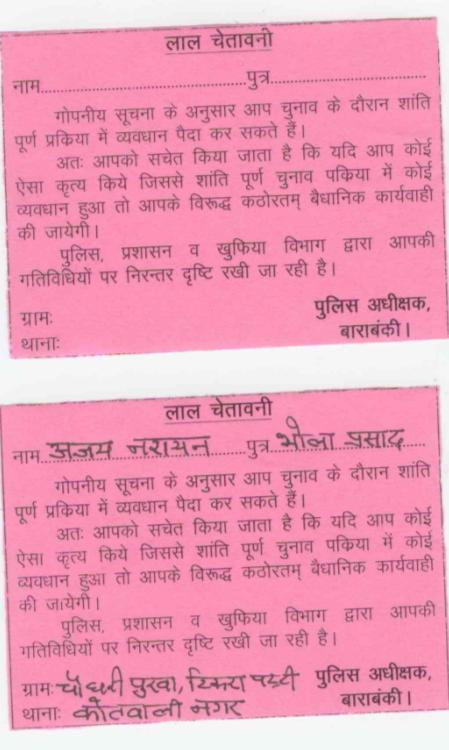 लाल चेतावनी
नाम........................................पुत्र..............................
गोपनीय सूचना के अनुसार आप चुनाव के दौरान शांति
पूर्ण प्रकिया में व्यवधान पैदा कर सकते हैं।
अतः आपको सचेत किया जाता है कि यदि आप कोई
ऐसा कृत्य किये जिससे शांति पूर्ण चुनाव पकिया में कोई
व्यवधान हुआ तो आपके विरूद्ध कठोरतम् बैधानिक कार्यवाही
की जायेगी।
पुलिस, प्रशासन व खुफिया विभाग द्वारा आपकी
गतिविधियों पर निरन्तर दृष्टि रखी जा रही है।
ग्रामः
पुलिस अधीक्षक,
थानाः
बाराबंकी।
लाल चेतावनी
नाम अजय नरायन पुत्र भोला प्रसाद
गोपनीय सूचना के अनुसार आप चुनाव के दौरान शांति
पूर्ण प्रकिया में व्यवधान पैदा कर सकते हैं।
अतः आपको सचेत किया जाता है कि यदि आप कोई
ऐसा कृत्य किये जिससे शांति पूर्ण चुनाव पकिया में कोई
व्यवधान हुआ तो आपके विरूद्ध कठोरतम् बैधानिक कार्यवाही
की जायेगी।
पुलिस, प्रशासन व खुफिया विभाग द्वारा आपकी
गतिविधियों पर निरन्तर दृष्टि रखी जा रही है।
ग्रामः चौधरी पुरवा, पुलिस अधीक्षक,
थानाः कोतवाली नगर बाराबंकी।